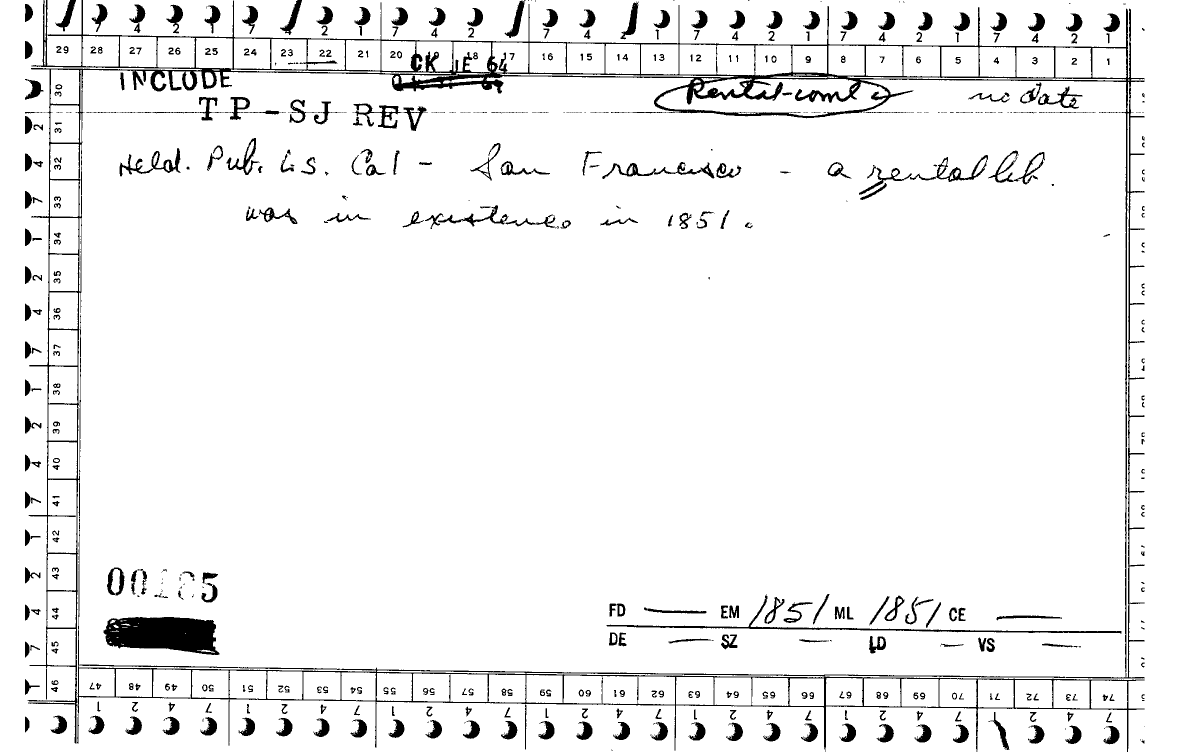 7 4 2 1 7 4 2 1 7 4 2 1 7 4 2 1 7 4 2 1 7 4 2 1
29 28 27 26 25 24 23 22 21 20 19 18 17 16 15 14 13 12 11 10 9 8 7 6 5 4 3 2 1
CK JE 64
INCLUDE
TP-SJ REV
Rental-coml
no date
Held. Pub. Lis. Cal - San Francisco - a rental lib.
was in existence in 1851.
30
31
32
33
34
35
36
37
38
39
40
41
42
43
44
45
46
00185
FD — EM 1851 ML 1851 CE —
DE — SZ — LD — VS —
47 48 49 50 51 52 53 54 55 56 57 58 59 60 61 62 63 64 65 66 67 68 69 70 71 72 73 74